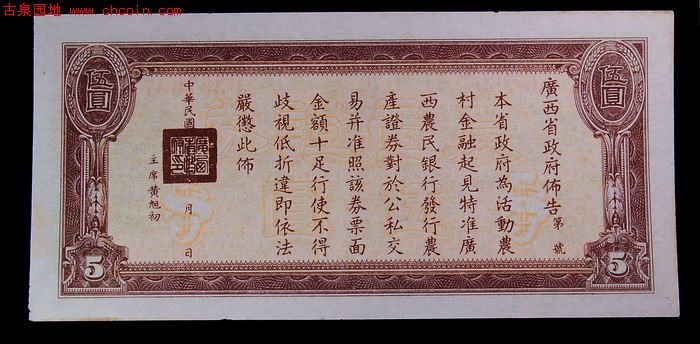 古泉园地：www.chcoin.com
伍圓
廣西省政府佈告 第 號
本省政府為活動農
村金融起見特准廣
西農民銀行發行農
產證券對於公私交
易并准照該券票面
金額十足行使不得
歧視低折違即依法
嚴懲此佈
中華民國 月 日
主席黃旭初
伍圓
5
5